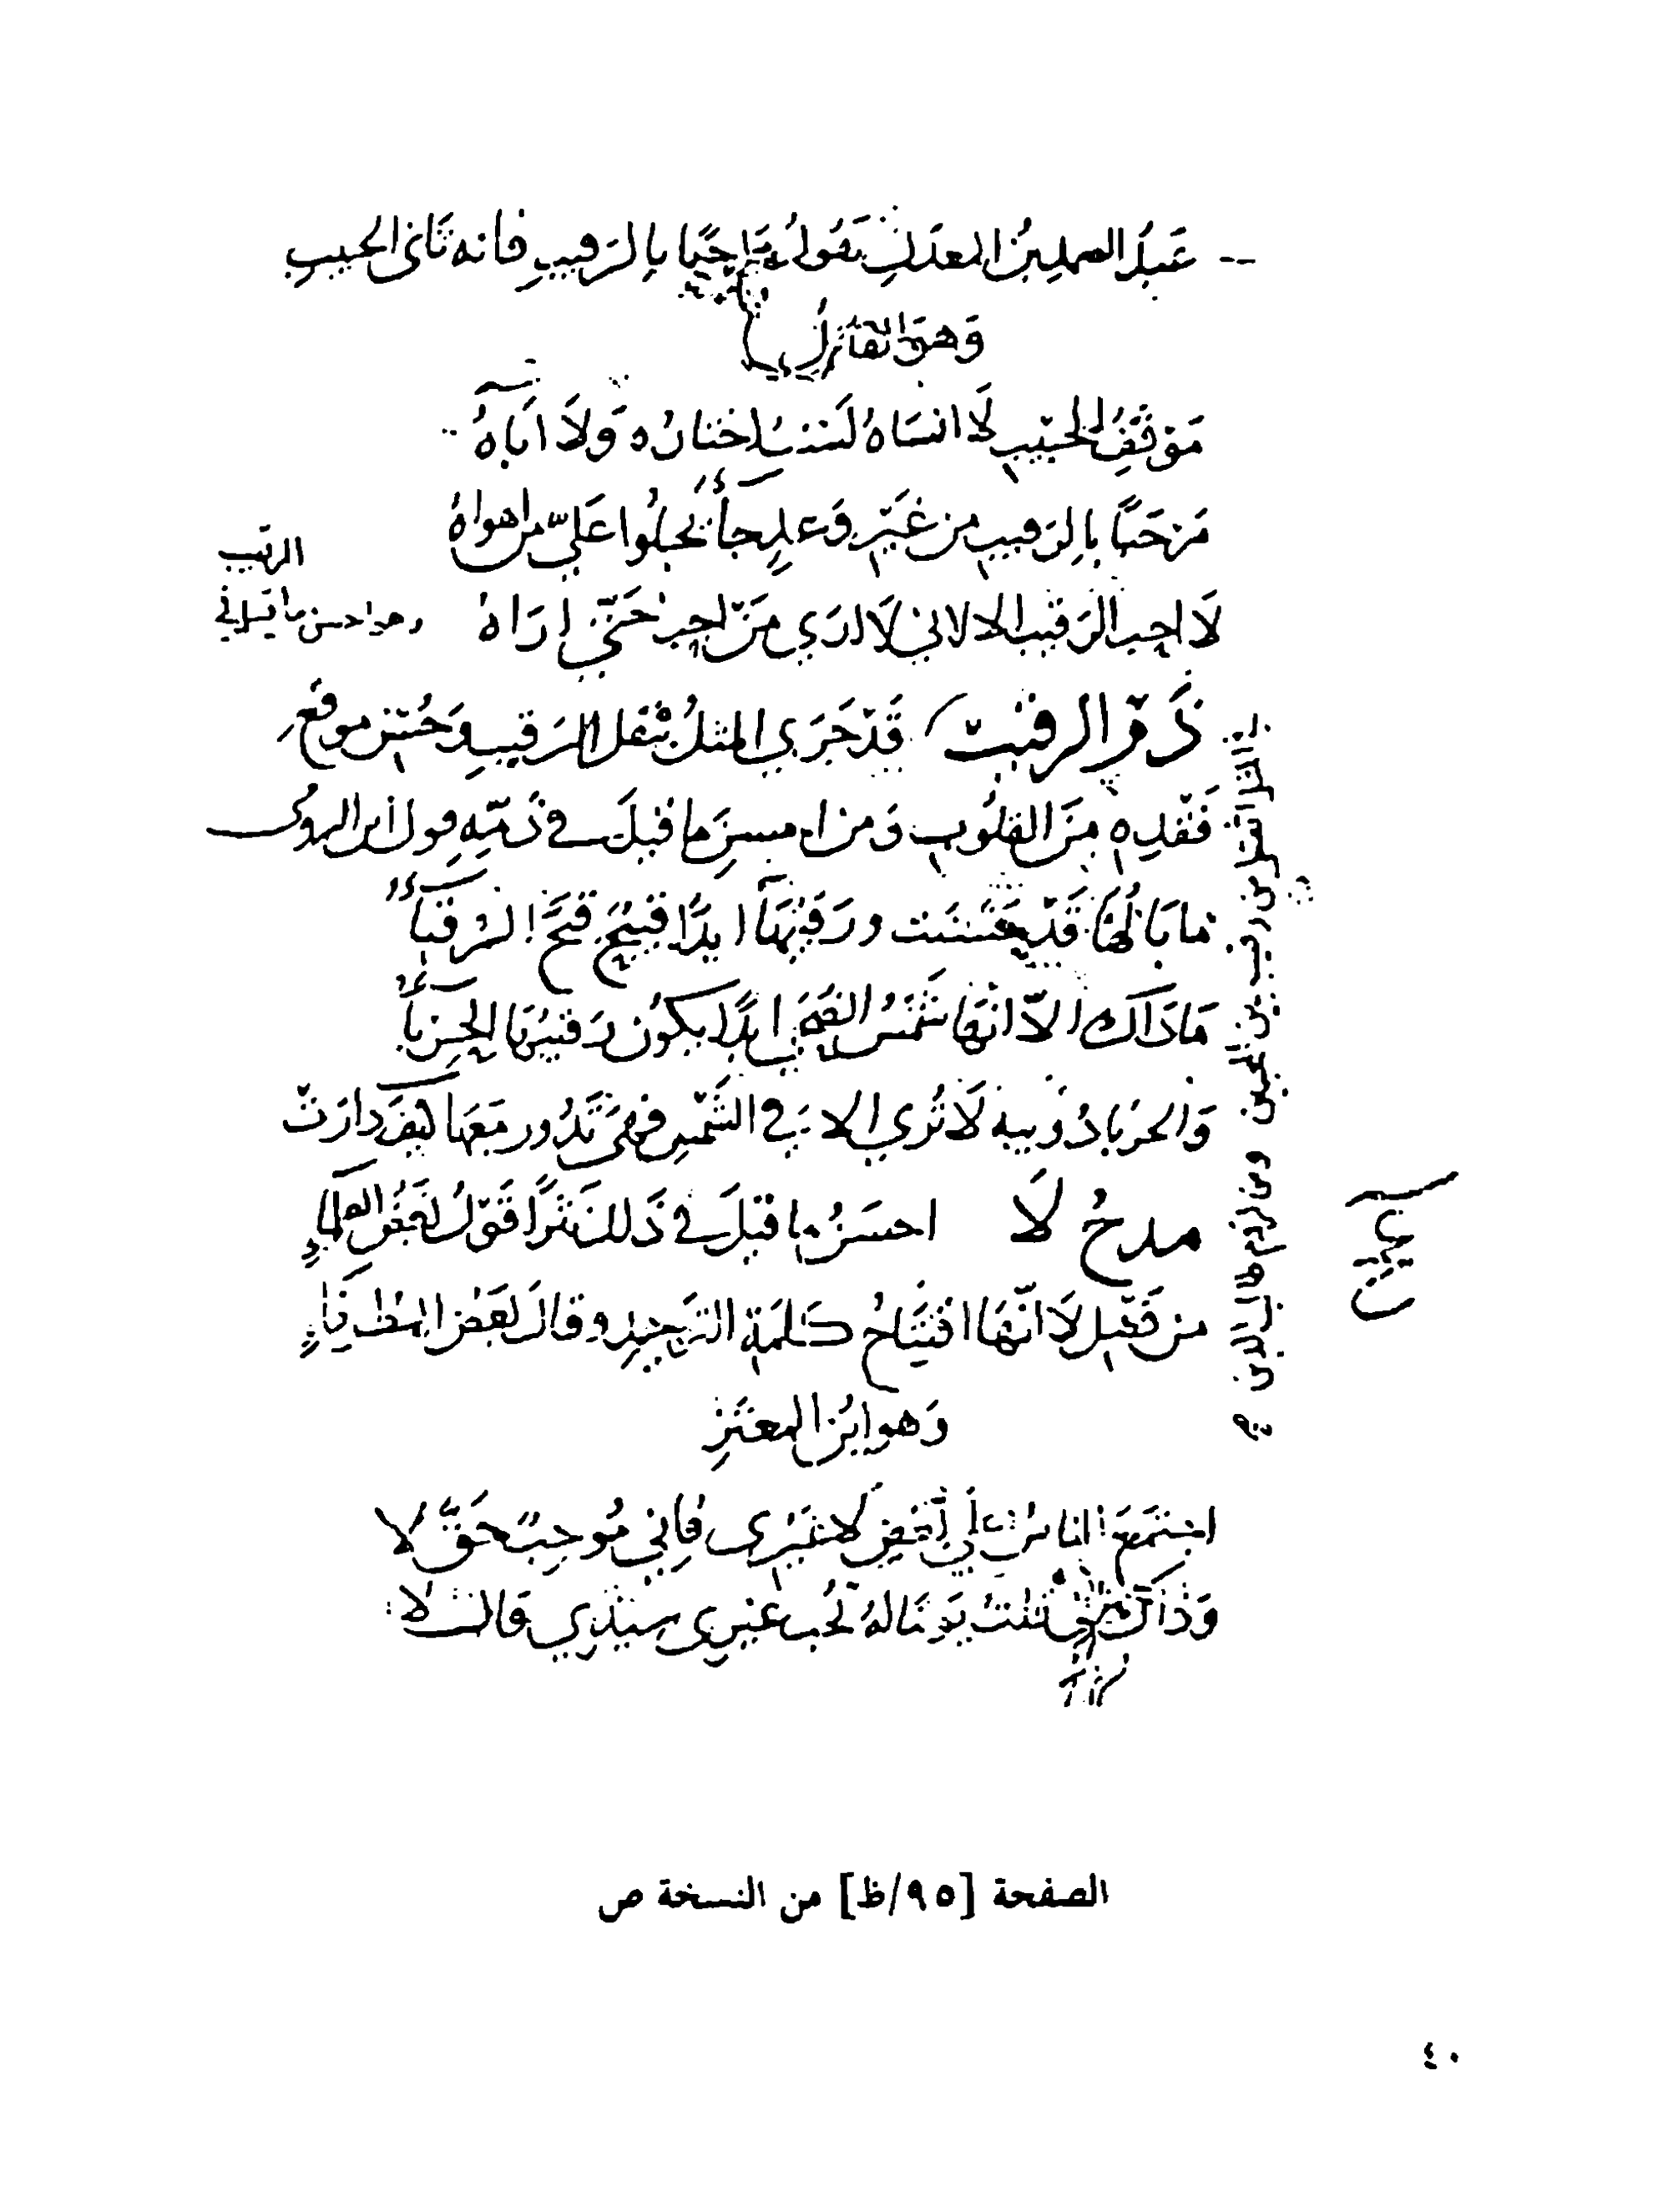 عَبدُ الصمد بنُ المعذل يَقولُ مرحبًا بالرَقيبِ فانه ثَاني الحبيبِ
وَهوَ القائلُ
مَوْقفُ الحَبيْبِ لَا انسَاهُ لَستُ اختارُه وَلَا ابَآهُ
مَرْحَبًا بالرَقيبِ من غَيرِ وَعدٍ جآءَ يجلُوا عَليَّ من اهواهُ
الرقيب
لَا احب الرَقيب الا لاني لَا ارَي مَنْ احبُ حَتّي ارَاهُ
وهو احسن ما قيل في
ذَم الرقيب قَدْ جَرَي المثلُ بثقل الرَقيبِ وَحُسْن موقعِ
فَقْدِه مِنَ القلُوب وَمن احسنِ ما قيلَ في ذَمّهِ قول ابن الرومى
ما بَالُهَا قَدْ حُسِّنَت ورَقيْبُهَا ابَدًا قبيْحٌ قُبِّحَ الرُقبَآءُ
مَا ذَاك الاّ انّهَا شَمْسُ الضُحَى ابَدًا يكوُن رَقيبُهَا الحِربَآءُ
وَالحربَا دُوَيبه لَا تُرَي الا في الشَّمْسِ فهىَ تَدُور مَعَهَا كيفَ دارَتْ
مدحُ لَا احسَنُ ما قيلَ في ذَلك نَثرًا قَوْلُ بَعضُ العلماءِ
من فَضْلِ لَا انّهَا افتتَاحُ كَلمَة التوحيدِ وقالَ بَعَضُ الظرفَاءِ
وَهو ابن المعتَزِ
اجتَمعَ الناسُ علي بُغضِ لا غيرى فاني مُوجبٌ حَقَّ لا
وَذَاك اني قلتُ يَومًا لهُ تحُب غيرى سيدي قال لا
الصفحة [٩٥/ظ] من النسخة ص
٤٠